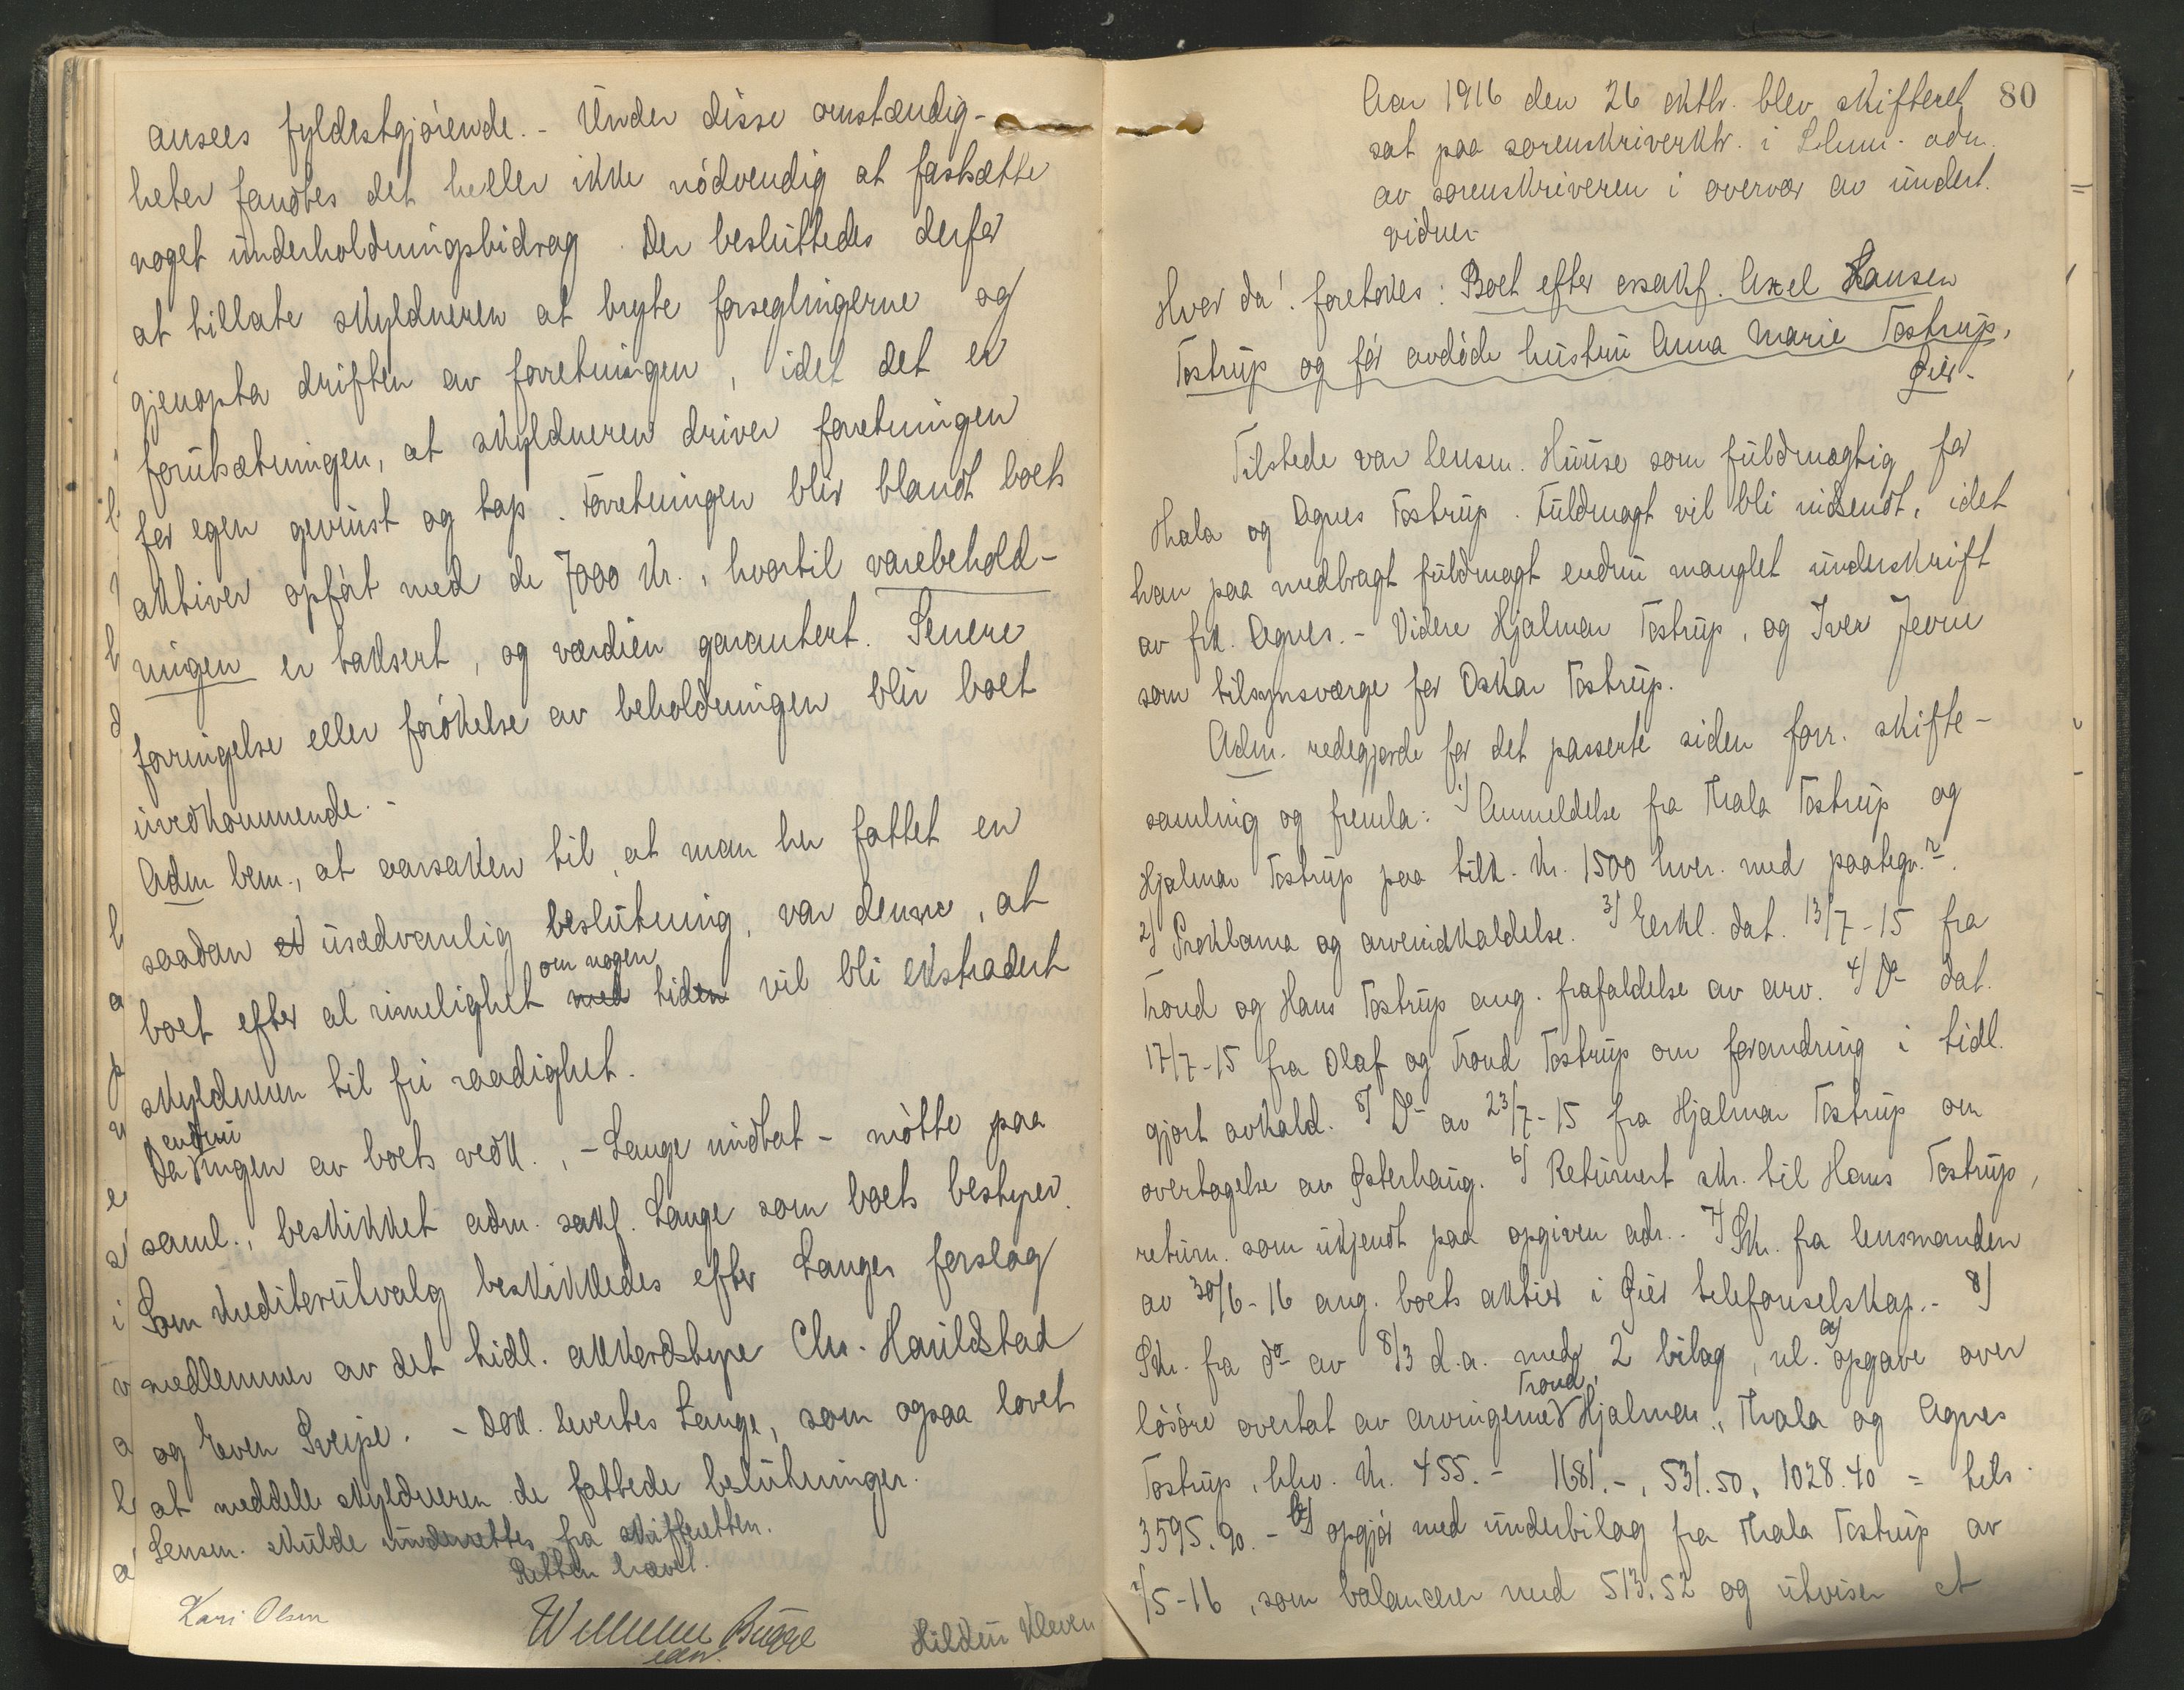 ansees fyldestgjørende. - Under disse omstændig-
heter fandtes det heller ikke nødvendig at fastsætte
noget underholdningsbidrag. Der besluttedes derfor
at tillate skyldneren at bryte forseglingerne og
gjenopta driften av forretningen, idet det er
forutsætningen, at skyldneren driver forretningen
for egen gevinst og tap. Forretningen blir blandt boets
aktiver opført med de 7000 kr., hvortil varebehold-
ningen er taksert, og værdien garantert. Senere
forringelse eller forøkelse av beholdningen blir boet
uvedkommende. -
Adm bem., at aarsaken til, at man her fattet en
saadan usædvanlig beslutning, var denne, at
boet efter al rimelighet med om nogen tiden vil bli ekstradert
skyldneren til fri raadighet.
Da endnu ingen av boets vedk., - Lange undtat - møtte paa
saml., beskikket adm. sakf. Lange som boets bestyrer.
Som kreditorutvalg beskikkedes efter Langes forslag
medlemmer av det tidl. akkordstyre Chr. Haukstad
og Even Sveipe. - Dok. levertes Lange, som ogsaa lovet
at meddele skyldneren de fattede beslutninger.
Lensm. skulde underrettes fra skifteretten.
Retten hævet.
Kari Olsen
Wilhelm Bugge
edw.
Kleven
80
Aar 1916 den 26 oktbr. blev skifteret
sat paa sorenskriverktr. i Lhmr. adm.
av sorenskriveren i overvær av undert.
vidner
Hvor da! foretokes: Boet efter ovsakf. Axel Hansen
Tostrup og før avdøde hustru Anna Marie Tostrup,
Øier.
Tilstede var lensm. Huuse som fuldmægtig for
Thala og Agnes Tostrup. Fuldmagt vil bli indsendt, idet
han paa medbragt fuldmagt endnu manglet underskrift
av frk. Agnes. - Videre Hjalmar Tostrup, og Iver Jevne
som tilsynsværge for Oskar Tostrup.
Adm. redegjorde for det passerte siden forr. skifte-
samling og fremla: 1) Anmeldelse fra Thala Tostrup og
Hjalmar Tostrup paa tilk. kr. 1500 hver. med paategn.
2) Proklama og arveindkaldelse. 3) Erkl. dat. 13/7-15 fra
Trond og Hans Tostrup ang. frafaldelse av arv. 4) Do dat.
17/7-15 fra Olaf og Trond Tostrup om forandring i tidl.
gjort avkald. 5) Do av 23/7-15 fra Hjalmar Tostrup om
overtagelse av Østerhaug. 6) Returnert skr. til Hans Tostrup,
return. som ukjendt paa opgiven adr. - 7) Skr. fra lensmanden
av 30/6-16 ang. boets aktier i Øier telefonselskap. - 8)
Skr. fra do av 8/3 d.a. med 2 bilag, nl. a) opgave over
løsøre overtat av arvingerne Trond, Hjalmar, Thala og Agnes
Tostrup, hhv. kr. 455.- 1681.-, 531.50, 1028.40 = tils.
3595.90. - b) opgjør med underbilag fra Thala Tostrup av
/5-16, som balancerer med 513.52 og utviser et